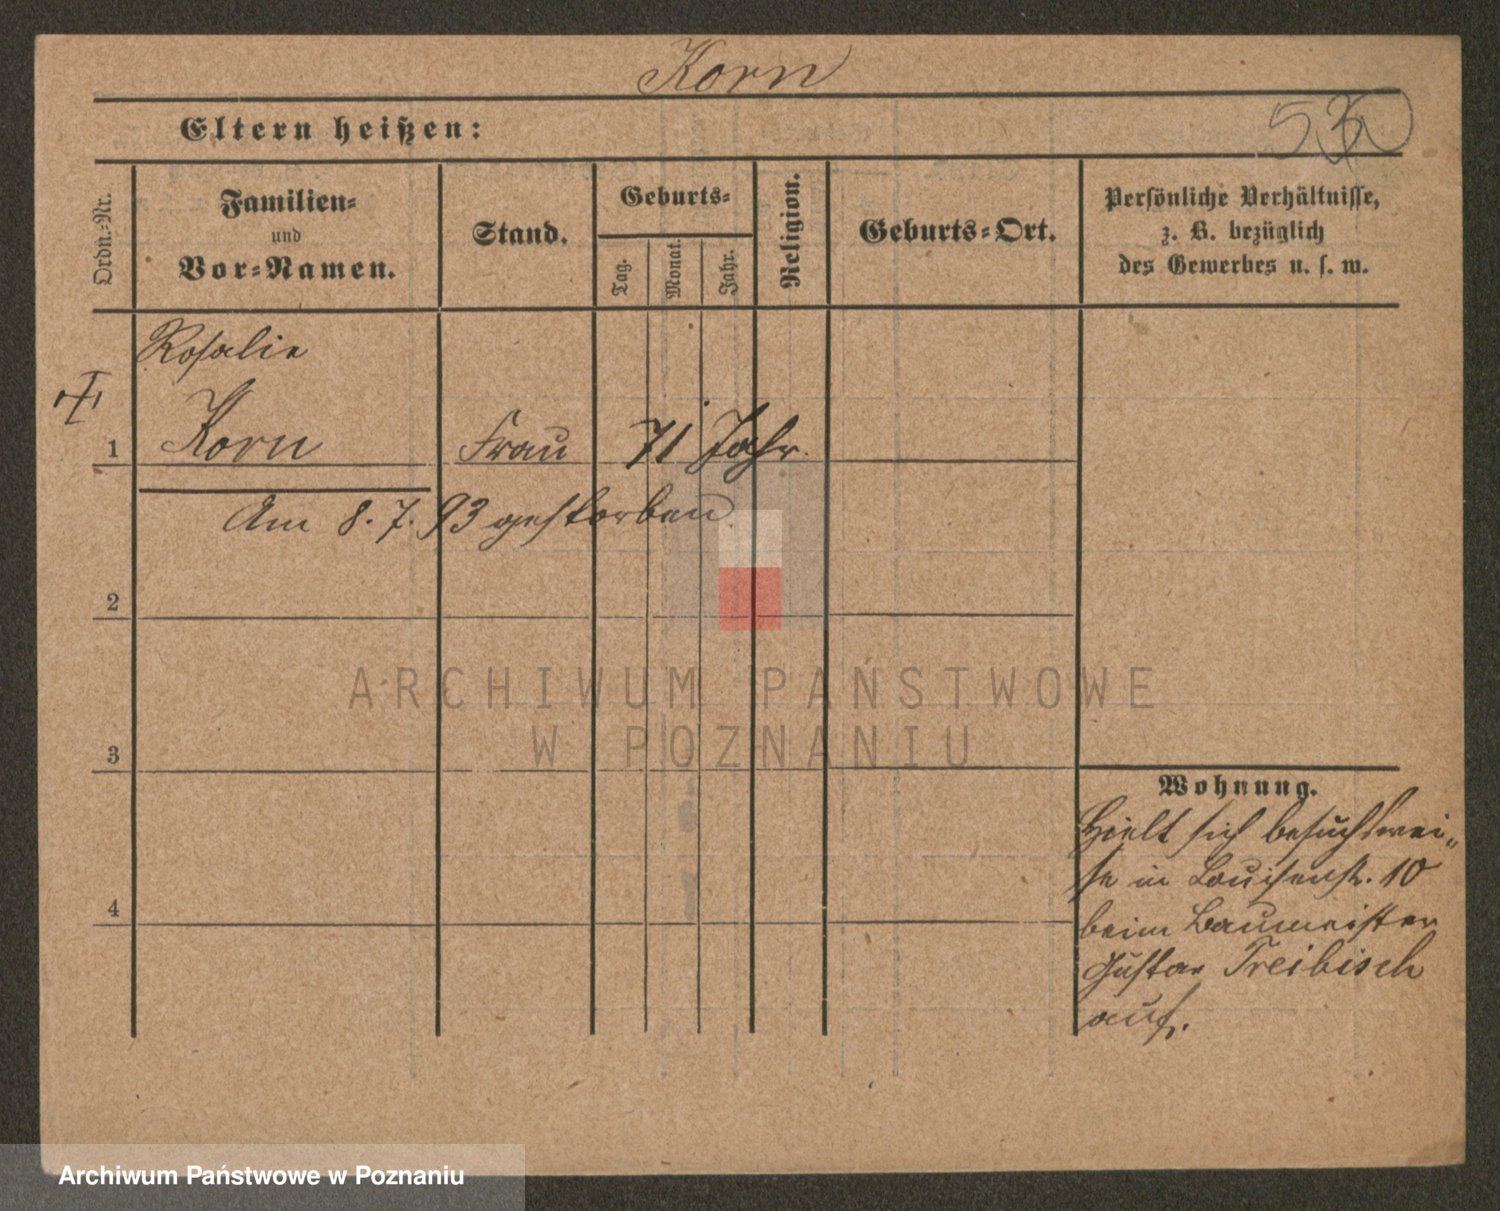 Korn
530
Eltern heißen:
Ordn.-Nr.
Familien- und Vor-Namen.
Stand.
Geburts-
Tag.
Monat.
Jahr.
Religion.
Geburts-Ort.
Persönliche Verhältnisse,
z. B. bezüglich
des Gewerbes u. s. w.
Rosalie
1 Korn Frau 71 Jahr.
Am 8. 7. 93 gestorben.
2
3
4
Wohnung.
Hielt sich besuchswei-
se in Louisenstr. 10
beim Baumeister
Gustav Treibisch
auf.
ARCHIWUM PAŃSTWOWE
W POZNANIU
Archiwum Państwowe w Poznaniu